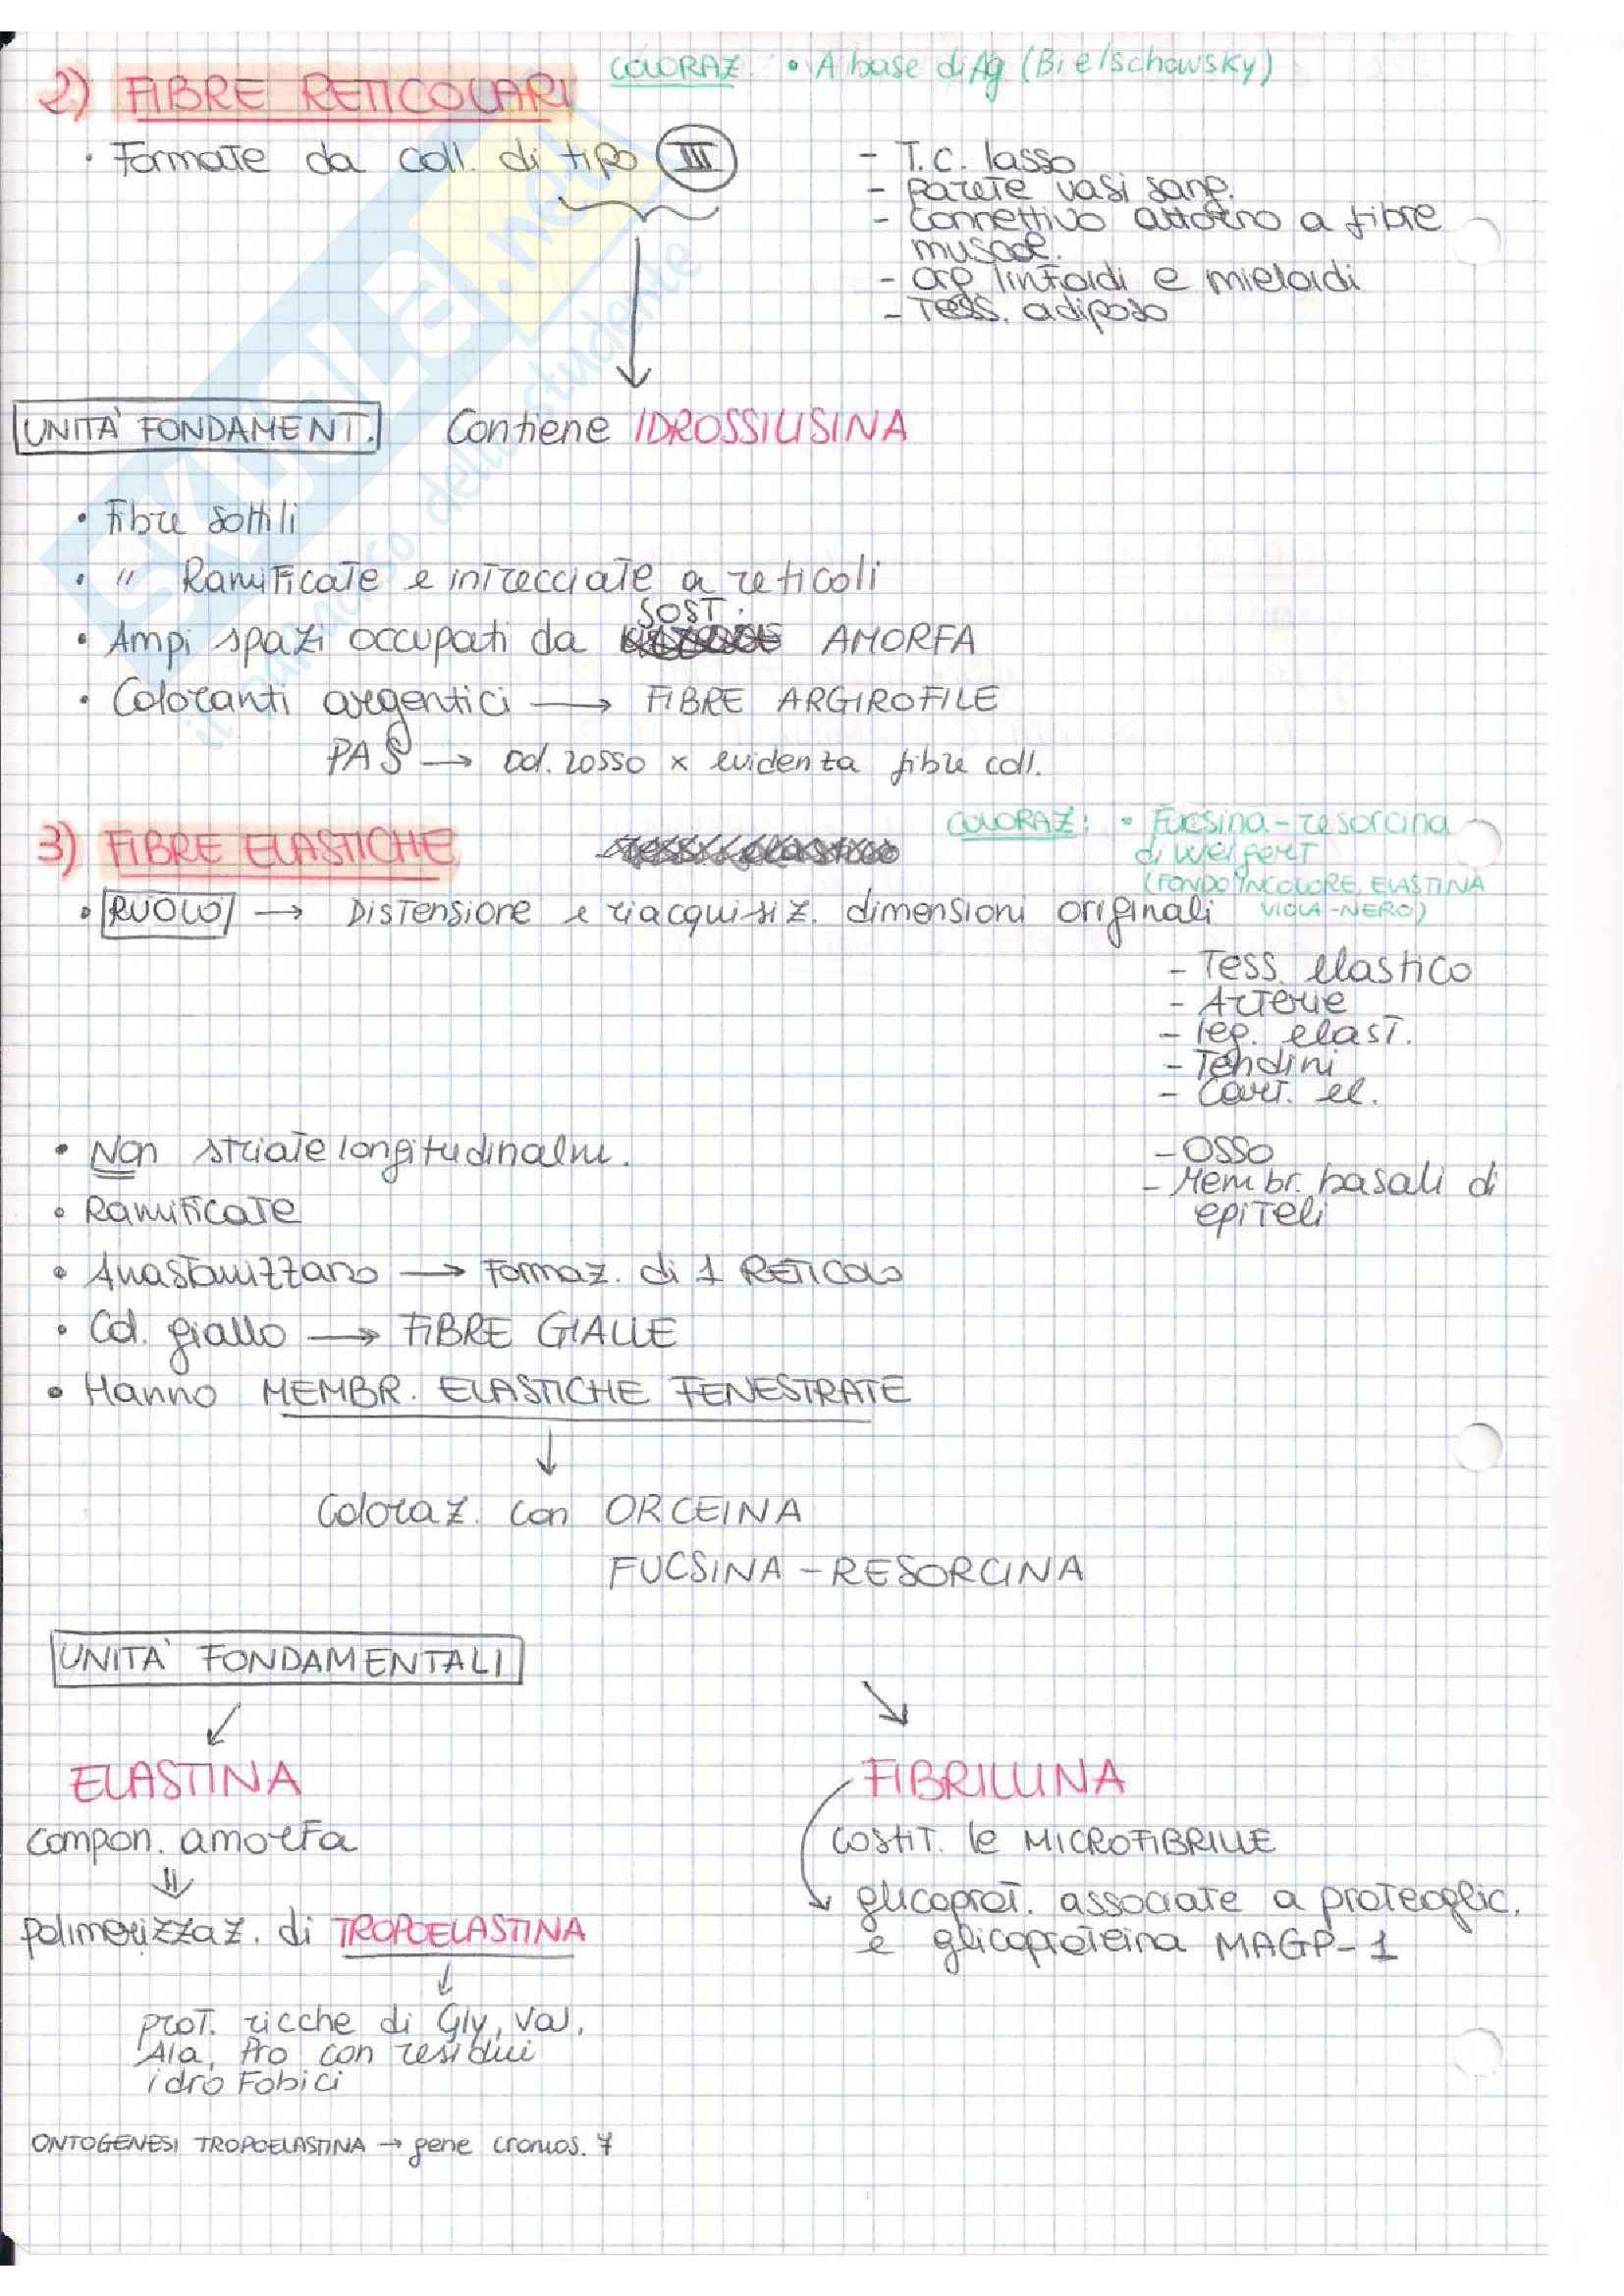 2) FIBRE RETICOLARI
COLORAZ. • A base di Ag (Bielschowsky)
• Formate da coll. di tipo III
- T.C. lasso
- parete vasi sang.
- Connettivo attorno a fibre
muscol.
- org linfoidi e mieloidi
- Tess. adiposo
UNITA' FONDAMENT. Contiene IDROSSILISINA
• Fibre sottili
• " Ramificate e intrecciate a reticoli
SOST.
• Ampi spazi occupati da AMORFA
• Coloranti argentici → FIBRE ARGIROFILE
PAS → col. rosso x evidenza fibre coll.
3) FIBRE ELASTICHE
tess. elastico
COLORAZ: • Fucsina-resorcina
di Weigert
(FONDO INCOLORE, ELASTINA
VIOLA-NERO)
• RUOLO → Distensione e riacquisiz. dimensioni originali
- Tess. elastico
- Arterie
- leg. elast.
- Tendini
- Cart. el.
- Osso
- Membr. basali di
epiteli
• Non striate longitudinalm.
• Ramificate
• Anastomizzano → Formaz. di 1 RETICOLO
• Col. giallo → FIBRE GIALLE
• Hanno MEMBR. ELASTICHE FENESTRATE
Coloraz. con ORCEINA
FUCSINA-RESORCINA
UNITA' FONDAMENTALI
ELASTINA
compon. amorfa
polimerizzaz. di TROPOELASTINA
prot. ricche di Gly, Val,
Ala, Pro con residui
idrofobici
ONTOGENESI TROPOELASTINA → gene cromos. 7
FIBRILLINA
costit. le MICROFIBRILLE
glicoprot. associate a proteoglic.
e glicoproteina MAGP-1
SKUOLA.net
il paradiso dello studente